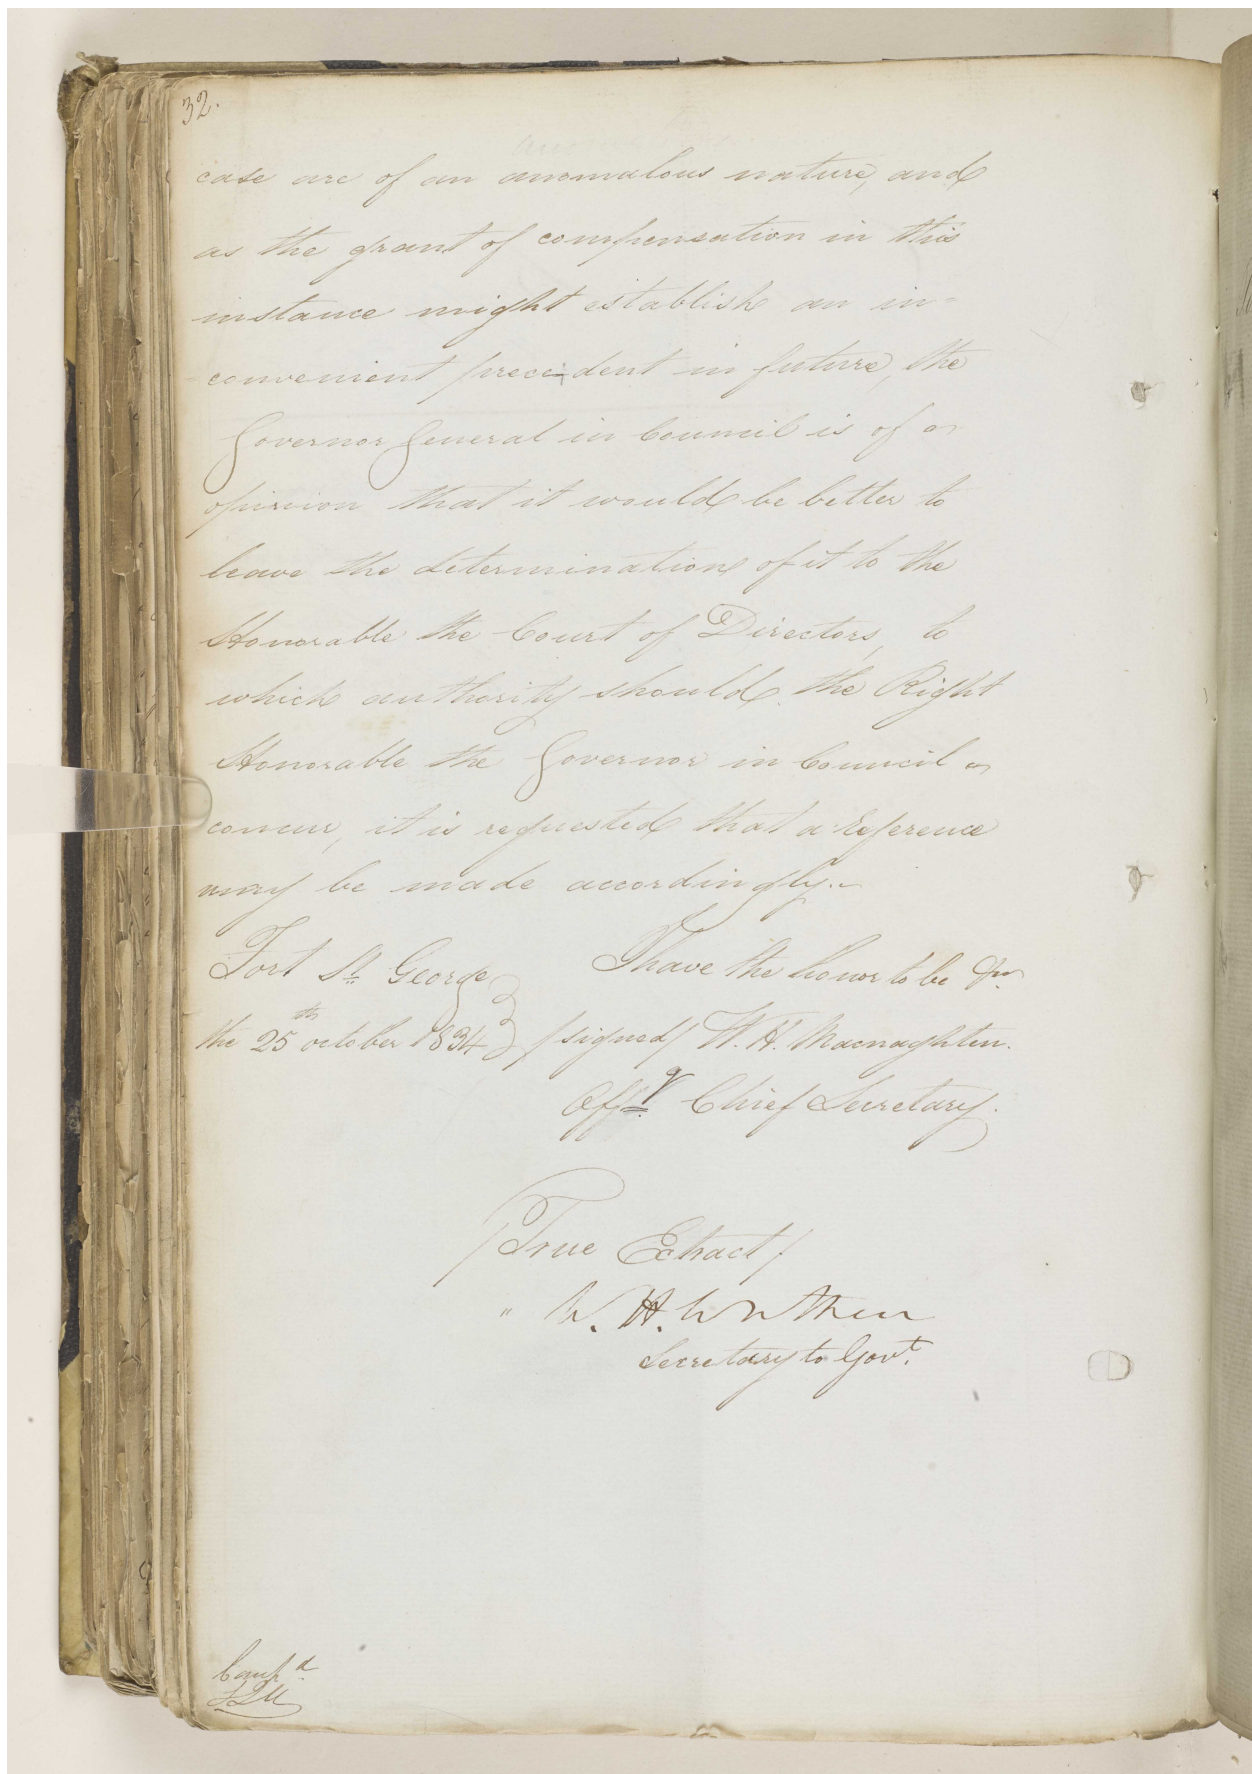 32.
case are of an anomalous nature, and
as the grant of compensation in this
instance might establish an in=
convenient precedent in future, the
Governor General in Council is of
opinion that it would be better to
leave the determination of it to the
Honorable the Court of Directors, to
which authority should the Right
Honorable the Governor in Council
concur, it is requested that a reference
may be made accordingly.
Fort St. George I have the honor to be &c
the 25th october 1834 /signed/ W. H. Macnaghten.
Offg. Chief Secretary.
/True Extract/
" W. H. Wathen
Secretary to Govt.
Compd